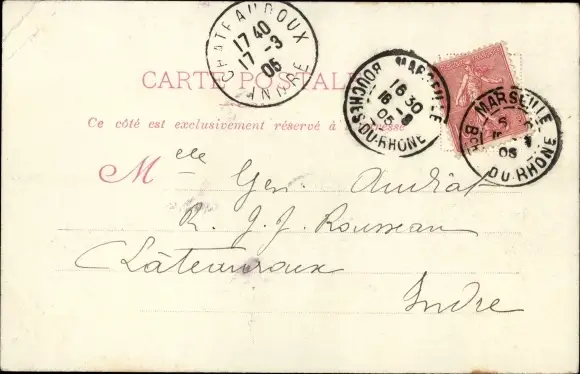 CHATEAUROUX
17 40
17 -3
05
INDRE
MARSEILLE
16 30
16 -3
05
BOUCHES-DU-RHONE
MARSEILLE
05
DU-RHONE
CARTE POSTALE
Ce côté est exclusivement réservé à l'adresse
Melle Gen. Audiat
R. J. J. Rousseau
Châteauroux
Indre